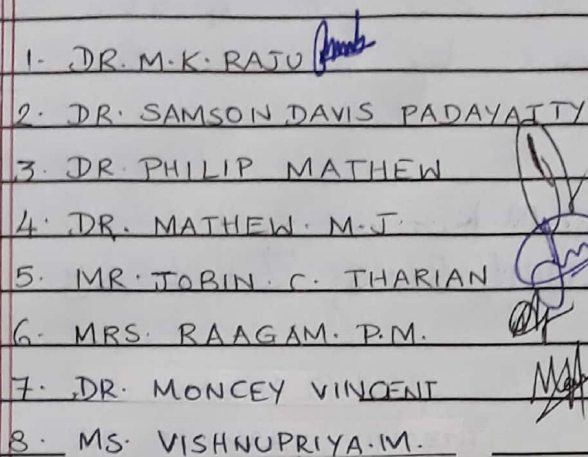 1. DR. M.K. RAJU
2. DR. SAMSON DAVIS PADAYATTY
3. DR PHILIP MATHEW
4. DR. MATHEW. M.J.
5. MR. JOBIN. C. THARIAN
6. MRS. RAAGAM. P.M.
7. DR. MONCEY VINCENT
8. MS. VISHNUPRIYA.M.